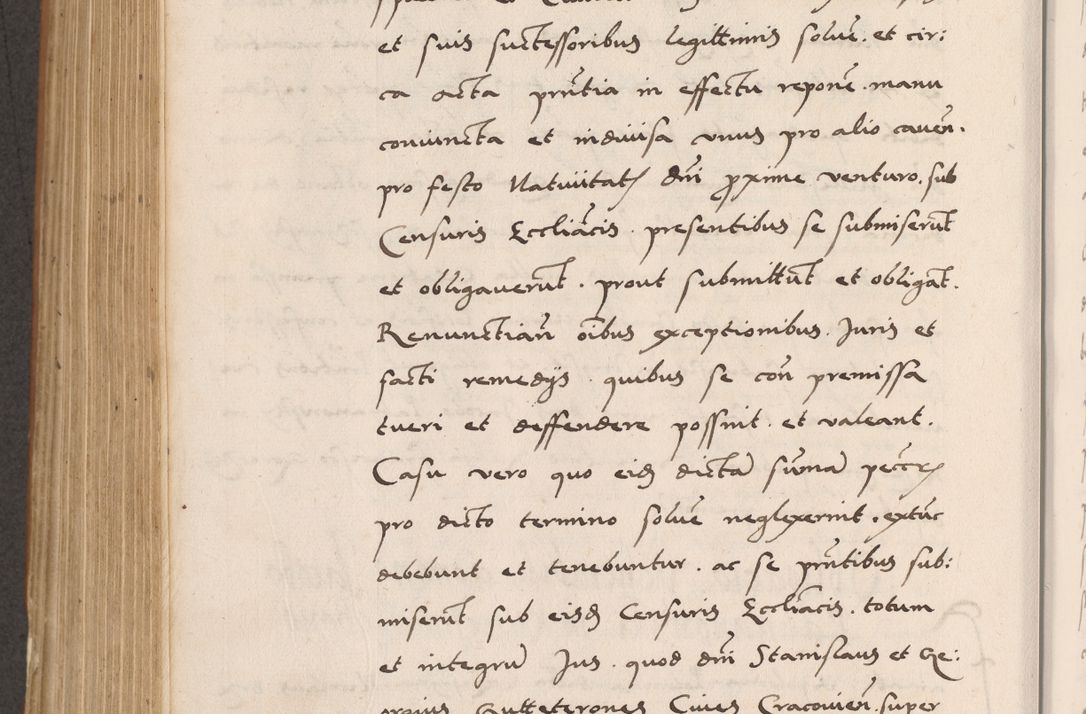 et suis successoribus legittimis solvē. et cir:
ca acta pn̄tia in effectu reponē. manu
coniuncta et indivisa unus pro alio cavēn.
pro festo Nativitatꝭ dn̄i ꝓxime venturo. sub
Censuris Eccliācis. presentibus se submiserūt
et obligaverūt. prout submittūt et obligāt.
Renunctiāñ oībus exceptionibus. Juris et
facti remedijs. quibus se con̄ premissa
tueri et deffendere possint. et valeant.
Casu vero quo eidē dictā sum̄ā pecc̄ꝭ
pro dicto termino solvē neglexerint. extūc
debebunt et tenebuntur. ac se pn̄tibus sub:
miserūt sub eisdē Censuris Eccliācis. totum
et integrū Jus. quod dn̄i Stanislaus et Ge:
orgius Gutteterones Cives Cracovień. super